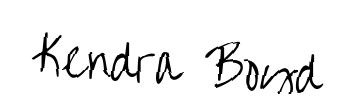 Kendra Boyd